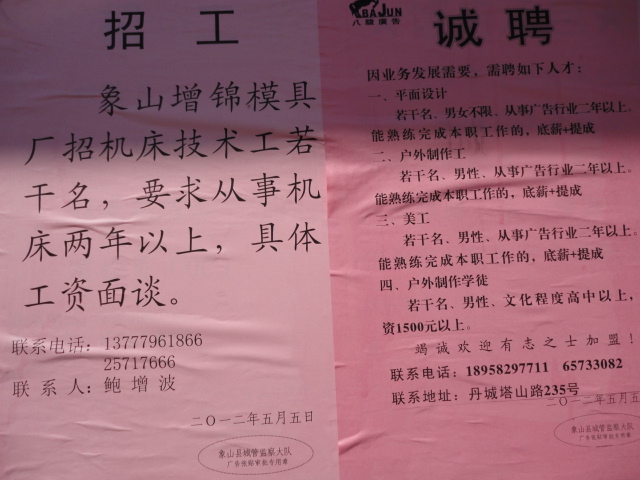 招工
象山增锦模具
厂招机床技术工若
干名，要求从事机
床两年以上，具体
工资面谈。
联系电话：13777961866
25717666
联系人：鲍增波
二〇一二年五月五日
象山县城管监察大队
广告张贴审批专用章
BAJUN
八骏广告
诚聘
因业务发展需要，需聘如下人才：
一、平面设计
若干名、男女不限、从事广告行业二年以上、
能熟练完成本职工作的，底薪+提成
二、户外制作工
若干名、男性、从事广告行业二年以上、
能熟练完成本职工作的，底薪+提成
三、美工
若干名、男性、从事广告行业二年以上、
能熟练完成本职工作的，底薪+提成
四、户外制作学徒
若干名、男性、文化程度高中以上，
资1500元以上。
竭诚欢迎有志之士加盟！
联系电话：18958297711 65733082
联系地址：丹城塔山路235号
二〇一二年五月五
象山县城管监察大队
广告张贴审批专用章